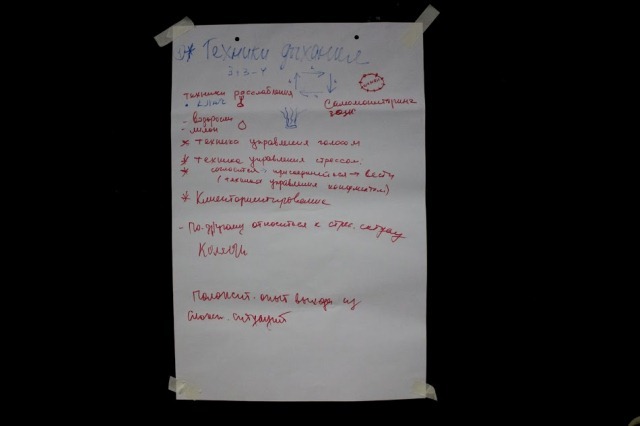 * Техники дыхания
техники расслабления
• ключ
Самомониторинг
- водоросли
- лимон
* техника управления голосом
* техника управления стрессом:
* согласиться, присоединиться → вести
(техника управления конфликтом)
* Клиентоориентирование
- По-другому относиться к стрес. ситуац
Положит. опыт выхода из
сложн. ситуаций